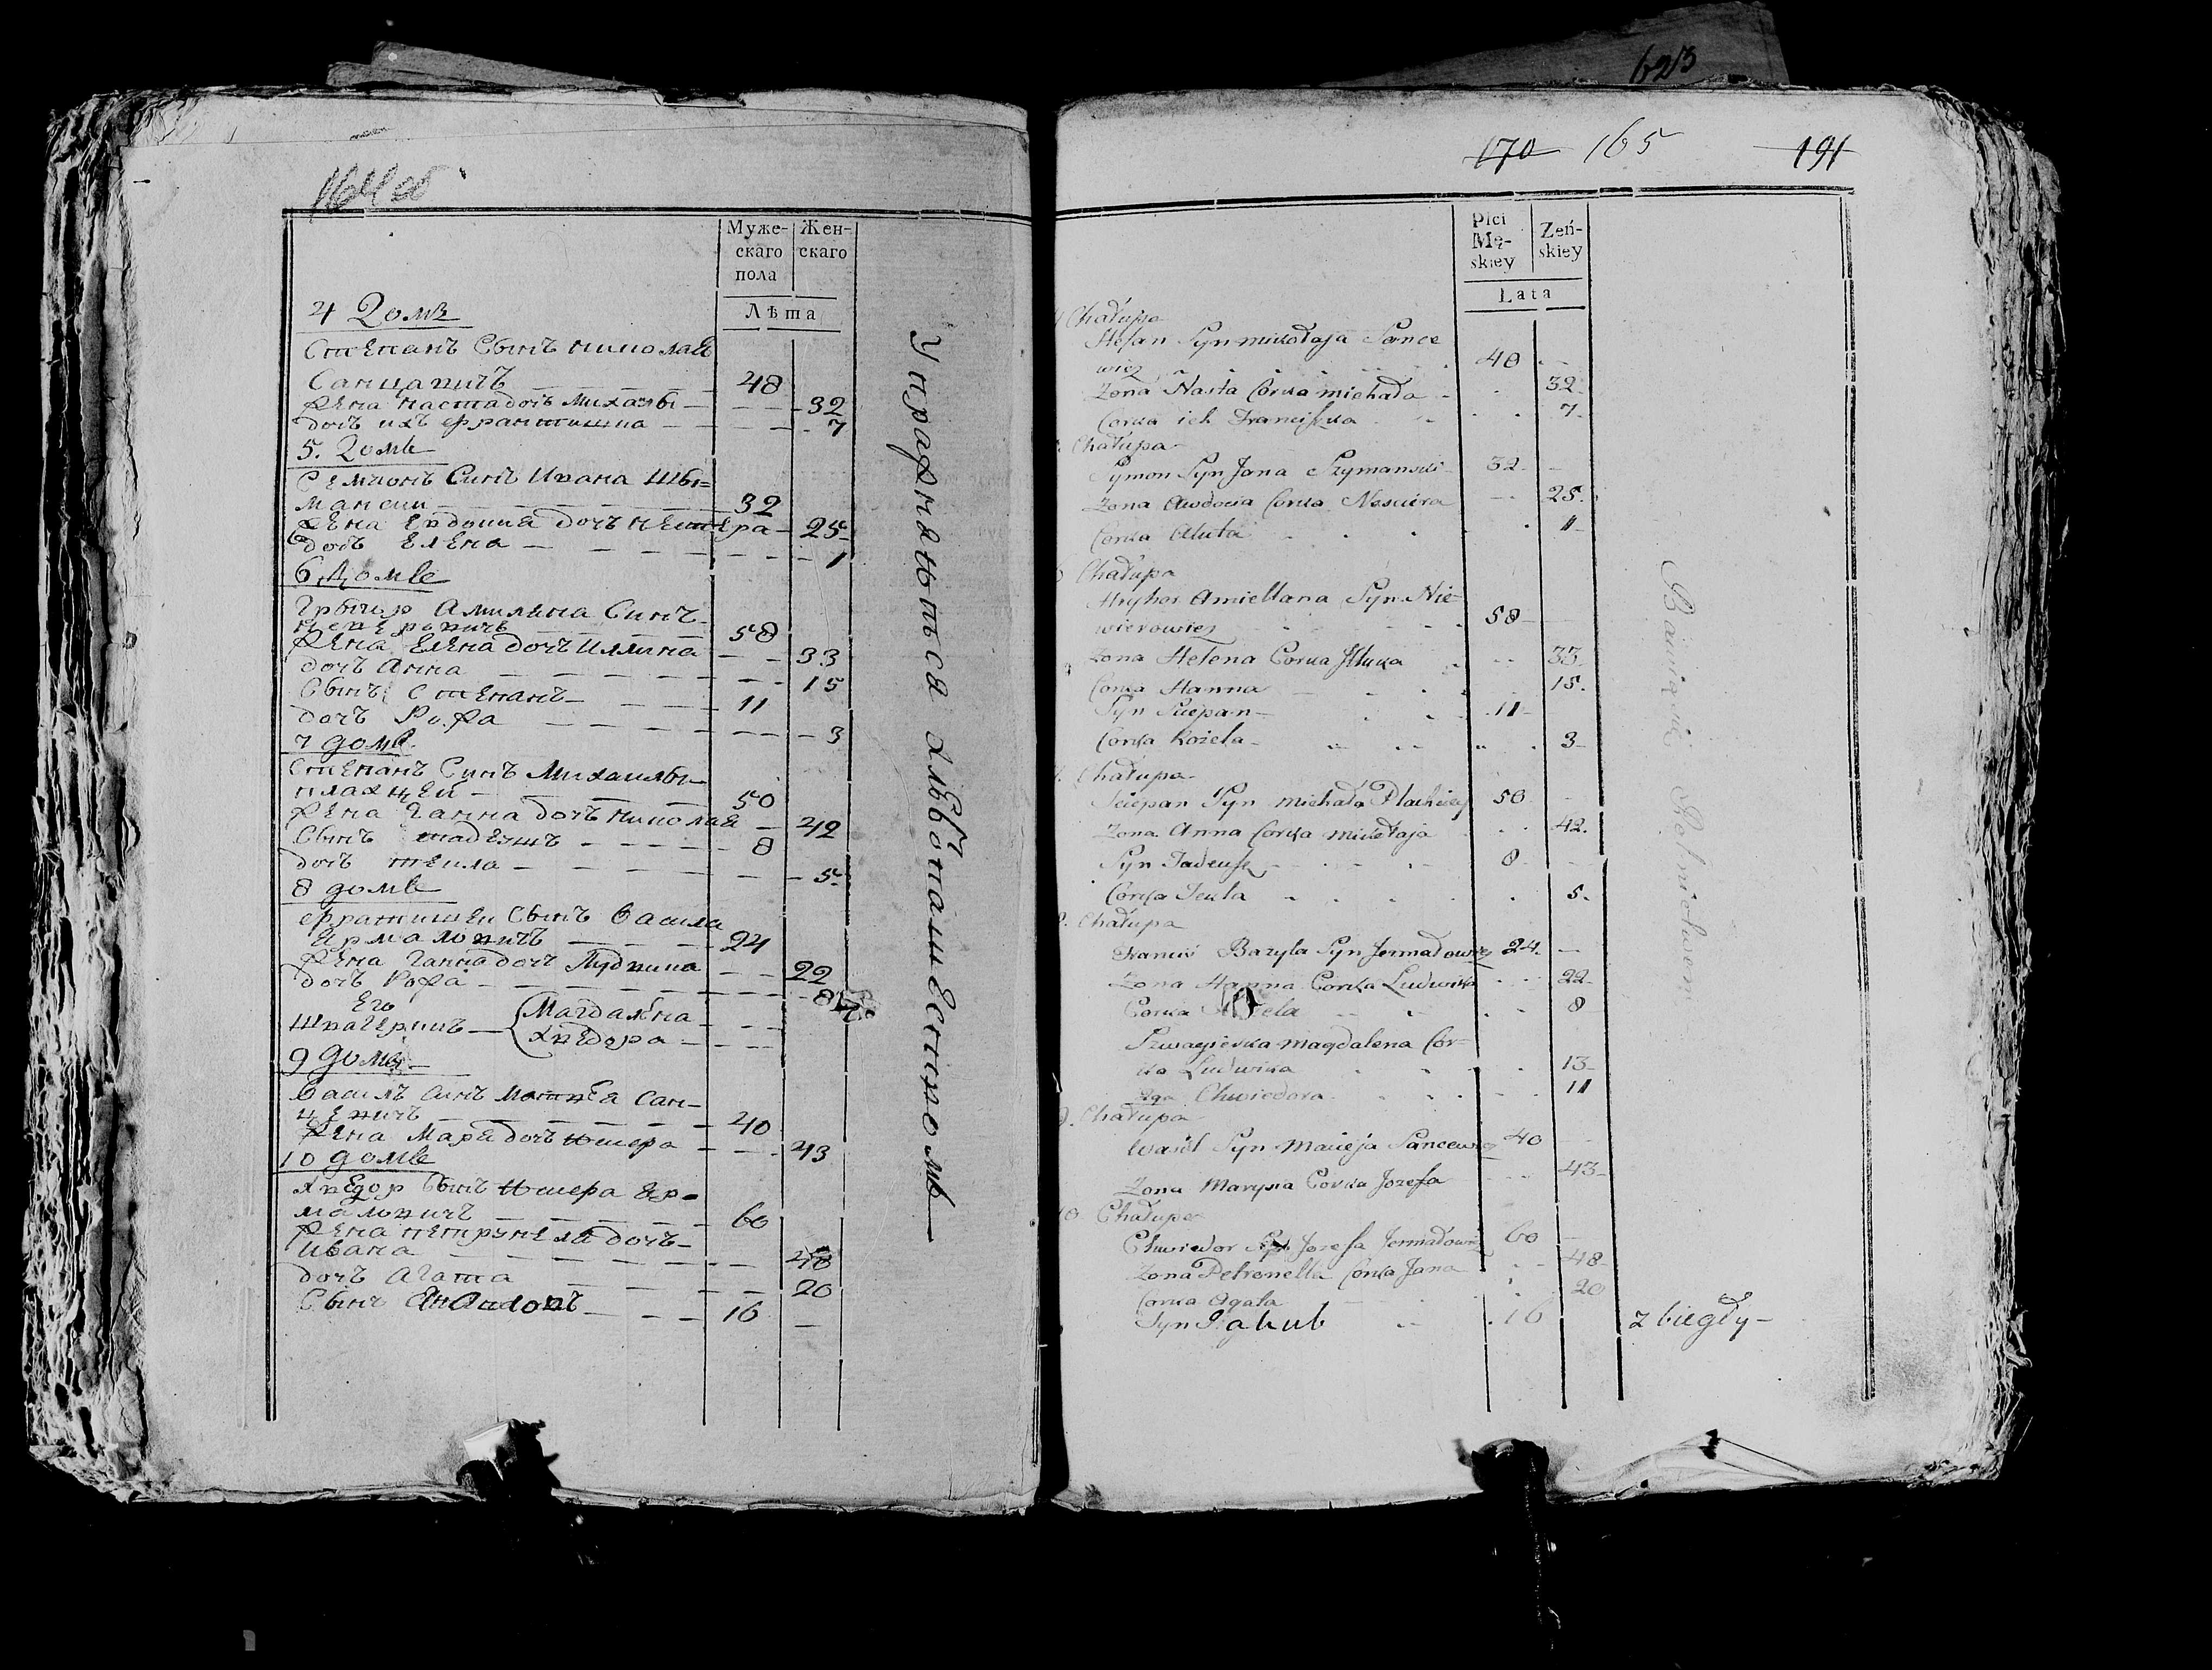 623
164 об
Муже-
скаго
пола
Жен-
скаго
Лѣта
4 Домѣ
Степанъ Сынъ Николая
Санцавичъ 48
Жена Наста дочъ Михалы 32
дочъ ихъ Францишка 7
5. Домѣ
Семионъ Синъ Ивана Шы=
мански 32
Жена Евдокиа дочъ Нестера 25
дочъ Елена 1
6 Домѣ
Грыгор Амиляна Синъ
58
Жена Елена дочъ Иллика 33
дочъ Анна 15
Сынъ Степанъ 11
дочъ Рожа 3
7 домѣ
Степанъ Синъ Михаилы
плахцей 50
Жена Ганна дочъ Николая 42
Сынъ тадеушъ 8
дочъ текла 5
8 домѣ
Францишек Сынъ Васила
Ярмаловичъ 24
Жена Ганна дочъ Лудвика 22
дочъ Рожа 8
Его
Швагерки Магдалена
Хведора
9 домѣ
Василъ Синъ Матвѣа Сан-
цевичъ 40
Жена Мариа дочъ Юзефа 43
10 домѣ
Хведор Сынъ Юзефа Яр-
маловичъ 60
Жена петрунеля дочъ
Ивана 48
дочъ Агата 20
Сынъ 16
Упражняються хлѣбопашеством
170 165 191
Płci
Mę-
skiey
Zeń-
skiey
Lata
Chałupa
Stefan Syn mikołaja Sance
wicz 40
Zona Nasta Corka michała 32
Corka ich Franciszka 7
Chałupa
Symon Syn Jana Szymanski 32
Zona Awdocia Corka Nesciera 25
Corka Aluta 1
Chałupa
Hryhor Amiellana Syn Nie
wierowicz 58
Zona Helena Corka Illuka 33
Corka Hanna 15
Syn Sciepan 11
Corka Rożela 3
Chałupa
Sciepan Syn michała Plachciey 50
Zona Anna Corka mikołaja 42
Syn Tadeusz 8
Corka Tekla 5
Chałupa
Franciś Bazyla Syn Jermałowicz 24
Zona Hanna Corka Ludwika 22
Corka 8
Szwagierka magdalena Cor=
ka Ludwika 13
2ga Chwiedora 11
9. Chałupa
Wasil Syn Macieja Sancewicz 40
Zona Maryna Corka Jozefa 43
10 Chałupa
Chwiedor Syn Jozefa Jermałowicz 60
Zona Petronella Corka Jana 48
Corka Agata 20
Syn Jakub 16 zbiegły
Bawią się Rolnictwem